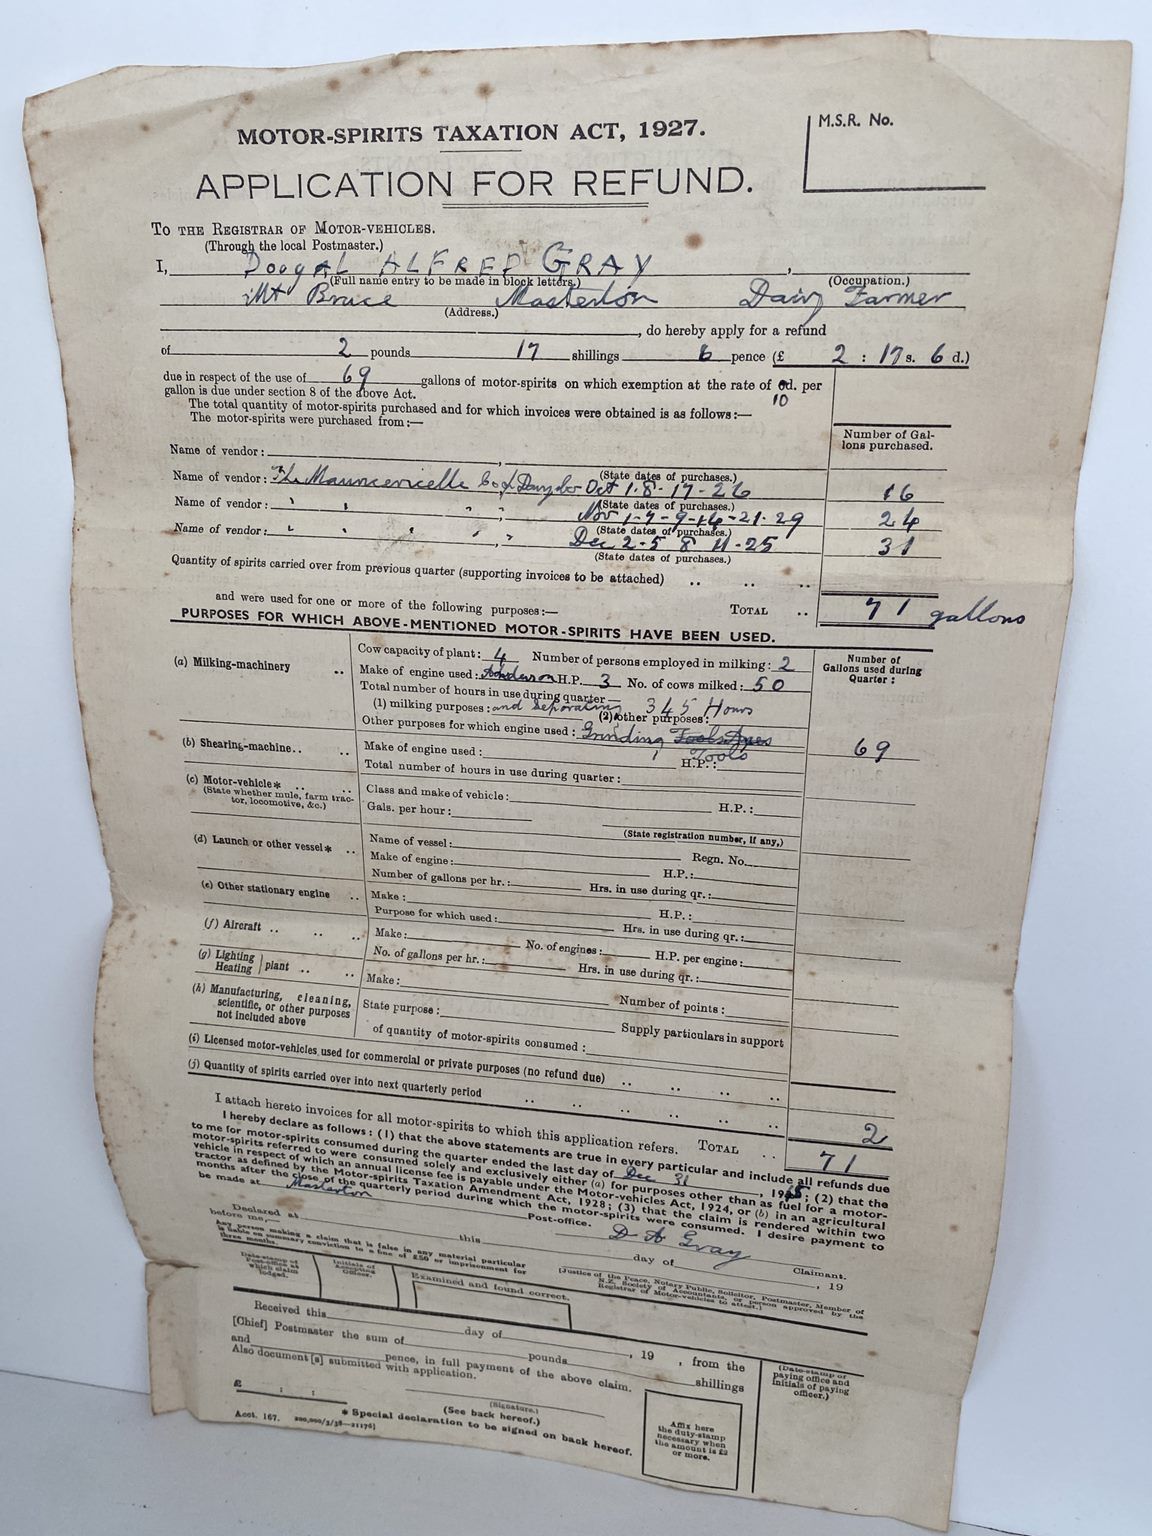 M.S.R. No.
MOTOR-SPIRITS TAXATION ACT, 1927.
APPLICATION FOR REFUND.
TO THE REGISTRAR OF MOTOR-VEHICLES.
(Through the local Postmaster.)
I, DOUGAL ALFRED GRAY,
(Full name entry to be made in block letters.) (Occupation.)
Mt Bruce Masterton Dairy Farmer
(Address.)
, do hereby apply for a refund
of 2 pounds 17 shillings 6 pence (£ 2 : 17 s. 6 d.)
due in respect of the use of 69 gallons of motor-spirits on which exemption at the rate of 6d. per
10
gallon is due under section 8 of the above Act.
The total quantity of motor-spirits purchased and for which invoices were obtained is as follows:—
The motor-spirits were purchased from:—
Number of Gallons purchased.
Name of vendor: ,
(State dates of purchases.)
Name of vendor: The Mauriceville Co op Dairy Co Oct 1-8-17-26 16
(State dates of purchases.)
Name of vendor: " " " " Nov 1-7-9-14-21-29 24
(State dates of purchases.)
Name of vendor: " " " " " Dec 2-5 8 11-25 31
(State dates of purchases.)
Quantity of spirits carried over from previous quarter (supporting invoices to be attached) .. .. ..
TOTAL .. 71 gallons
and were used for one or more of the following purposes:—
PURPOSES FOR WHICH ABOVE-MENTIONED MOTOR-SPIRITS HAVE BEEN USED.
Number of Gallons used during Quarter:
(a) Milking-machinery .. Cow capacity of plant: 4 Number of persons employed in milking: 2
Make of engine used: Anderson H.P. 3 No. of cows milked: 50
Total number of hours in use during quarter—
(1) milking purposes: and Separating 345 Hours (2) other purposes:
Other purposes for which engine used: Grinding Tools 69
(b) Shearing-machine.. .. Make of engine used: H.P.:
Total number of hours in use during quarter:
(c) Motor-vehicle* .. ..
(State whether mule, farm tractor, locomotive, &c.)
Class and make of vehicle: H.P.:
Gals. per hour:
(State registration number, if any,)
(d) Launch or other vessel* .. Name of vessel: Regn. No.
Make of engine: H.P.:
Number of gallons per hr.: Hrs. in use during qr.:
(e) Other stationary engine .. Make: H.P.:
Purpose for which used: Hrs. in use during qr.:
(f) Aircraft .. .. .. Make: No. of engines: H.P. per engine:
No. of gallons per hr.: Hrs. in use during qr.:
(g) Lighting
Heating } plant .. .. Make: Number of points:
(h) Manufacturing, cleaning, scientific, or other purposes not included above
State purpose: Supply particulars in support
of quantity of motor-spirits consumed:
(i) Licensed motor-vehicles used for commercial or private purposes (no refund due) .. .. ..
(j) Quantity of spirits carried over into next quarterly period .. .. .. .. .. 2
I attach hereto invoices for all motor-spirits to which this application refers. TOTAL .. 71
I hereby declare as follows: (1) that the above statements are true in every particular and include all refunds due
to me for motor-spirits consumed during the quarter ended the last day of Dec 31, 19 ; (2) that the
motor-spirits referred to were consumed solely and exclusively either (a) for purposes other than as fuel for a motor-
vehicle in respect of which an annual license fee is payable under the Motor-vehicles Act, 1924, or (b) in an agricultural
tractor as defined by the Motor-spirits Taxation Amendment Act, 1928; (3) that the claim is rendered within two
months after the close of the quarterly period during which the motor-spirits were consumed. I desire payment to
be made at Masterton Post-office.
D A Gray
Claimant.
Declared at this day of , 19
before me,—
(Justice of the Peace, Notary Public, Solicitor, Postmaster, Member of
N.Z. Society of Accountants, or person approved by the
Registrar of Motor-vehicles to attest.)
Any person making a claim that is false in any material particular
is liable on summary conviction to a fine of £50 or imprisonment for
three months.
Date-stamp of Post-office at which claim lodged.
Initials of Accepting Officer.
Examined and found correct.
Received this day of , 19 , from the
[Chief] Postmaster the sum of pounds shillings
and pence, in full payment of the above claim.
Also document [s] submitted with application.
£ : :
(Signature.)
(See back hereof.)
* Special declaration to be signed on back hereof.
Acct. 167. 200,000/3/38—21176]
Affix here the duty-stamp necessary when the amount is £2 or more.
(Date-stamp of paying office and initials of paying officer.)